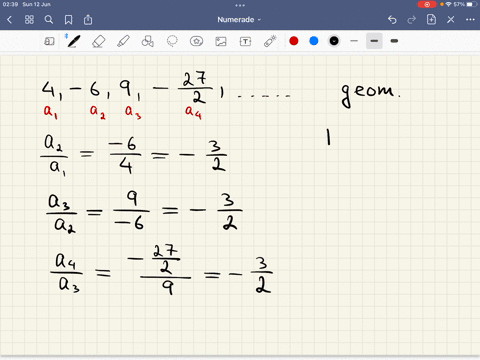 02:39 Sun 12 Jun 57%
Numerade
4, -6, 9, -27/2, ...... geom.
a₁ a₂ a₃ a₄
a₂/a₁ = -6/4 = -3/2
a₃/a₂ = 9/-6 = -3/2
a₄/a₃ = (-27/2)/9 = -3/2